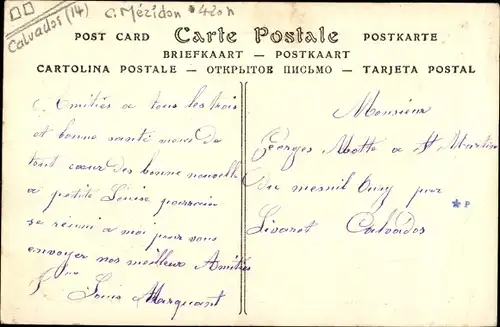 Calvados (14)
C. Mézidon 420 h
POST CARD Carte Postale POSTKARTE
BRIEFKAART — POSTKAART
CARTOLINA POSTALE — ОТКРЫТОЕ ПИСЬМО — TARJETA POSTAL
Amitiés a tous les trois
et bonne santé nous de
tout cœur des bonne nouvelle
a petite Louise
se réuni a moi pour vous
envoyer nos meilleur Amitiés
Louis Marguant
Monsieur
Georges Motte a St Martin
Du mesnil Oury par
Livarot Calvados
*P